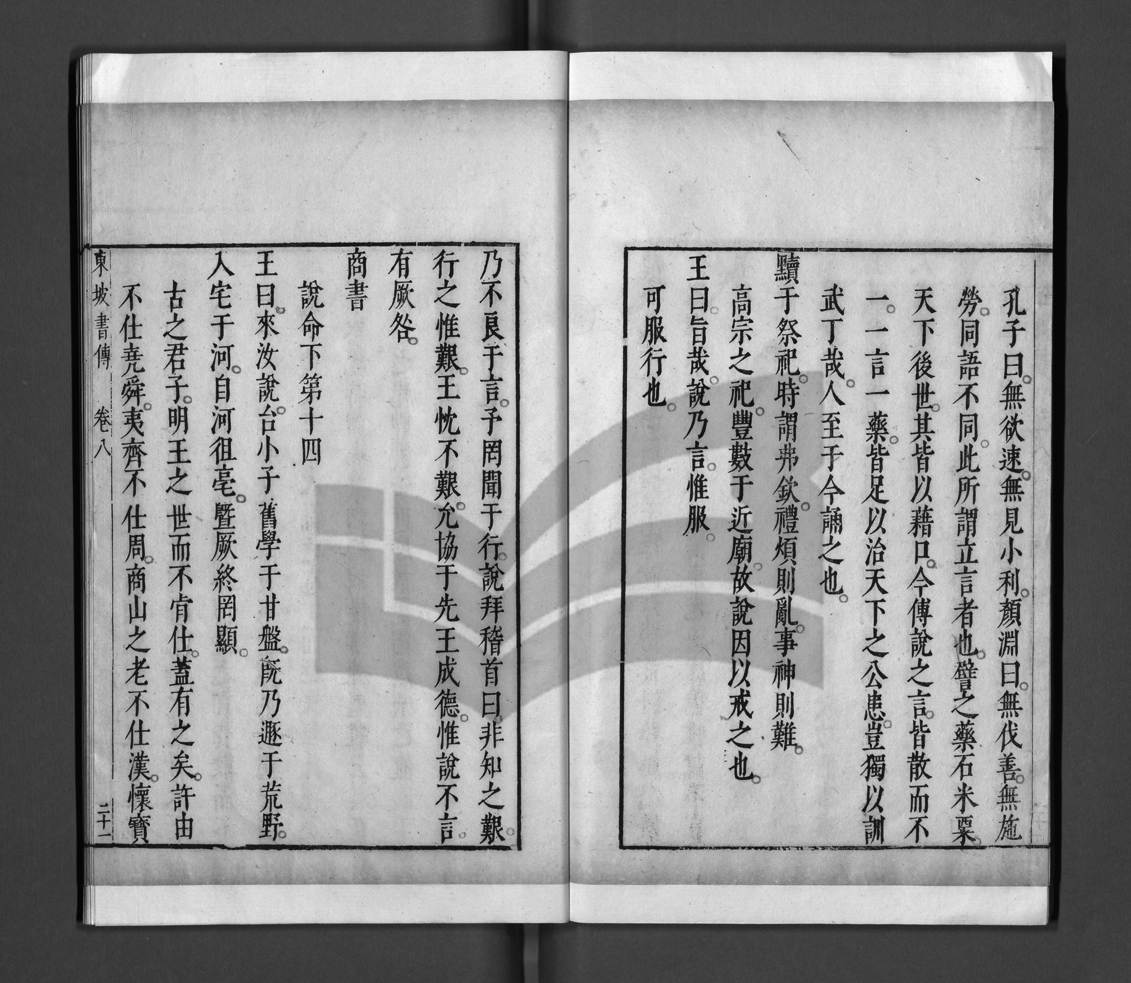 孔子曰。無欲速。無見小利。顏淵曰。無伐善。無施
勞。同語不同。此所謂立言者也。譬之藥石米粟。
天下後世。其皆以藉口。今傅說之言。皆散而不
一。一言一藥。皆足以治天下之公患。豈獨以訓
武丁哉。人至于今誦之也。
黷于祭祀。時謂弗欽。禮煩則亂。事神則難。
高宗之祀。豐數于近廟。故說因以戒之也。
王曰。旨哉。說乃言惟服。
可服行也。
乃不良于言。予罔聞于行。說拜稽首曰。非知之艱。
行之惟艱。王忱不艱。允協于先王成德。惟說不言。
有厥咎。
商書
說命下第十四
王曰。來汝說。台小子舊學于甘盤。旣乃遯于荒野。
入宅于河。自河徂亳。曁厥終罔顯。
古之君子。明王之世而不肯仕。蓋有之矣。許由
不仕堯舜。夷齊不仕周。商山之老不仕漢。懷寶
東坡書傳 卷八 二十一